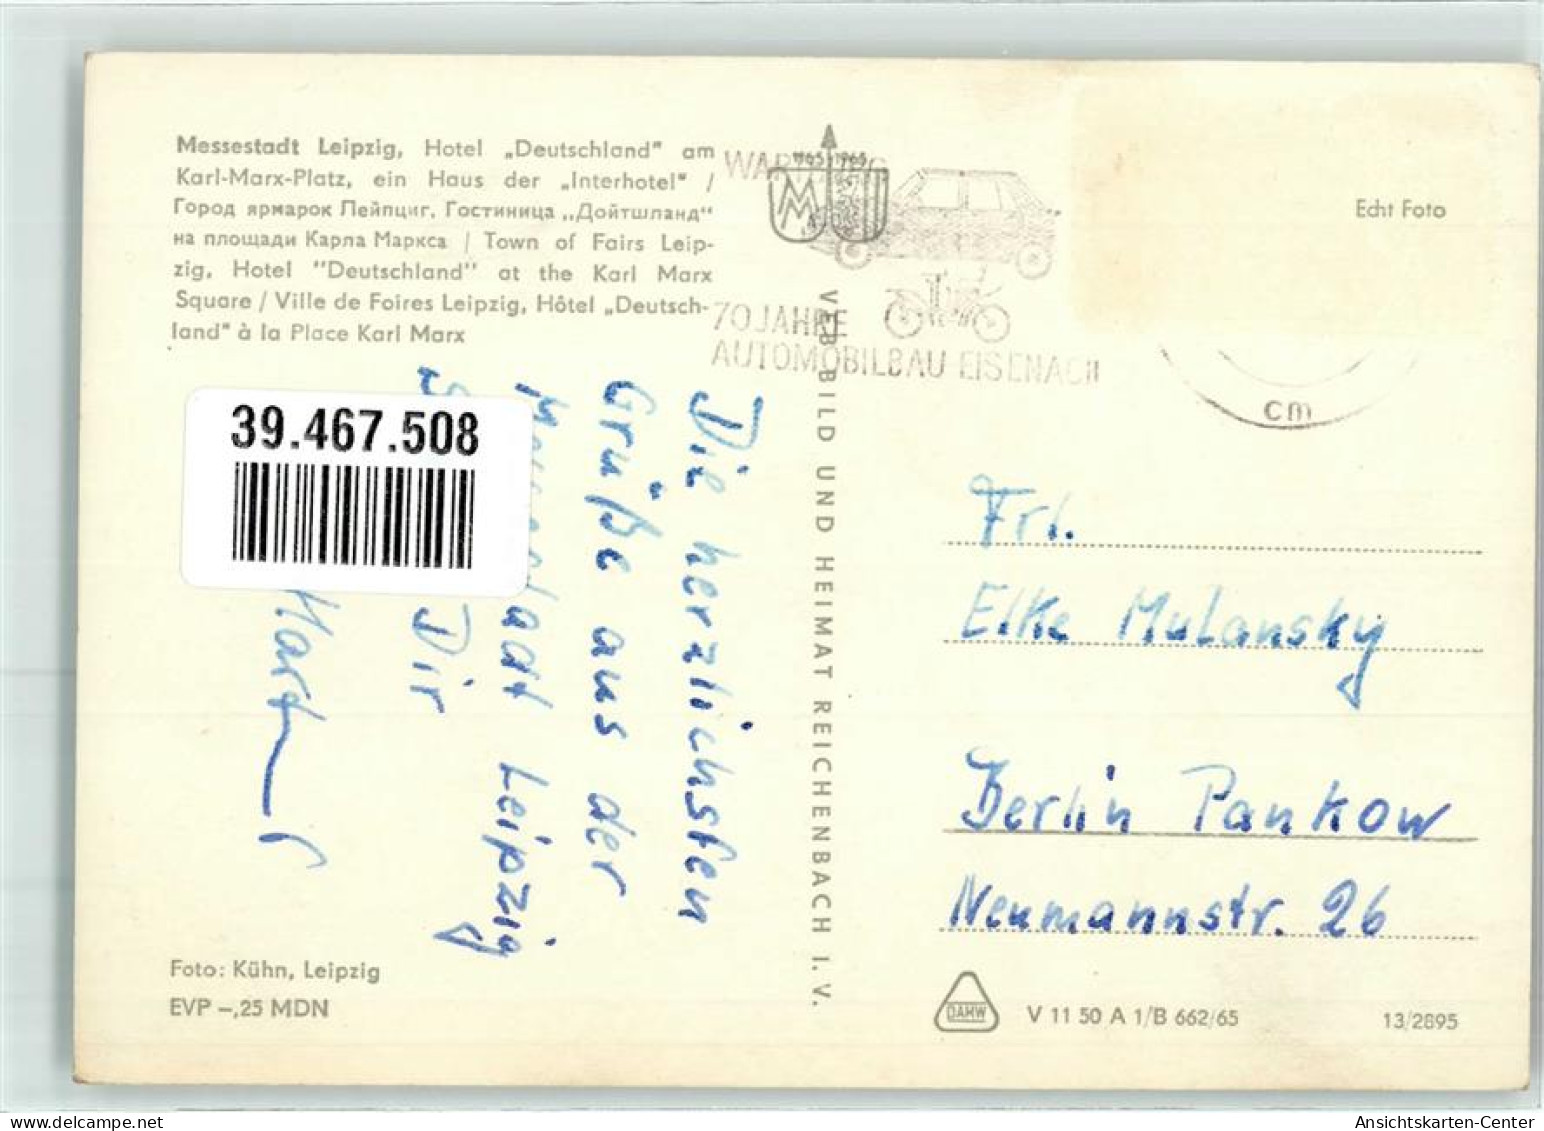 Messestadt Leipzig, Hotel „Deutschland" am
Karl-Marx-Platz, ein Haus der „Interhotel" /
Город ярмарок Лейпциг. Гостиница „Дойтшланд"
на площади Карла Маркса / Town of Fairs Leip-
zig, Hotel "Deutschland" at the Karl Marx
Square / Ville de Foires Leipzig, Hôtel „Deutsch-
land" à la Place Karl Marx
1165 1965
MM
70 JAHRE
AUTOMOBILBAU EISENACH
Echt Foto
cm
39.467.508
Die herzlichsten
Grüße aus der
Leipzig
Dir
VEB BILD UND HEIMAT REICHENBACH I. V.
Frl.
Elke Mulansky
Berlin Pankow
Neumannstr. 26
Foto: Kühn, Leipzig
EVP –,25 MDN
DAMW
V 11 50 A 1/B 662/65
13/2895
www.delcampe.net
Ansichtskarten-Center